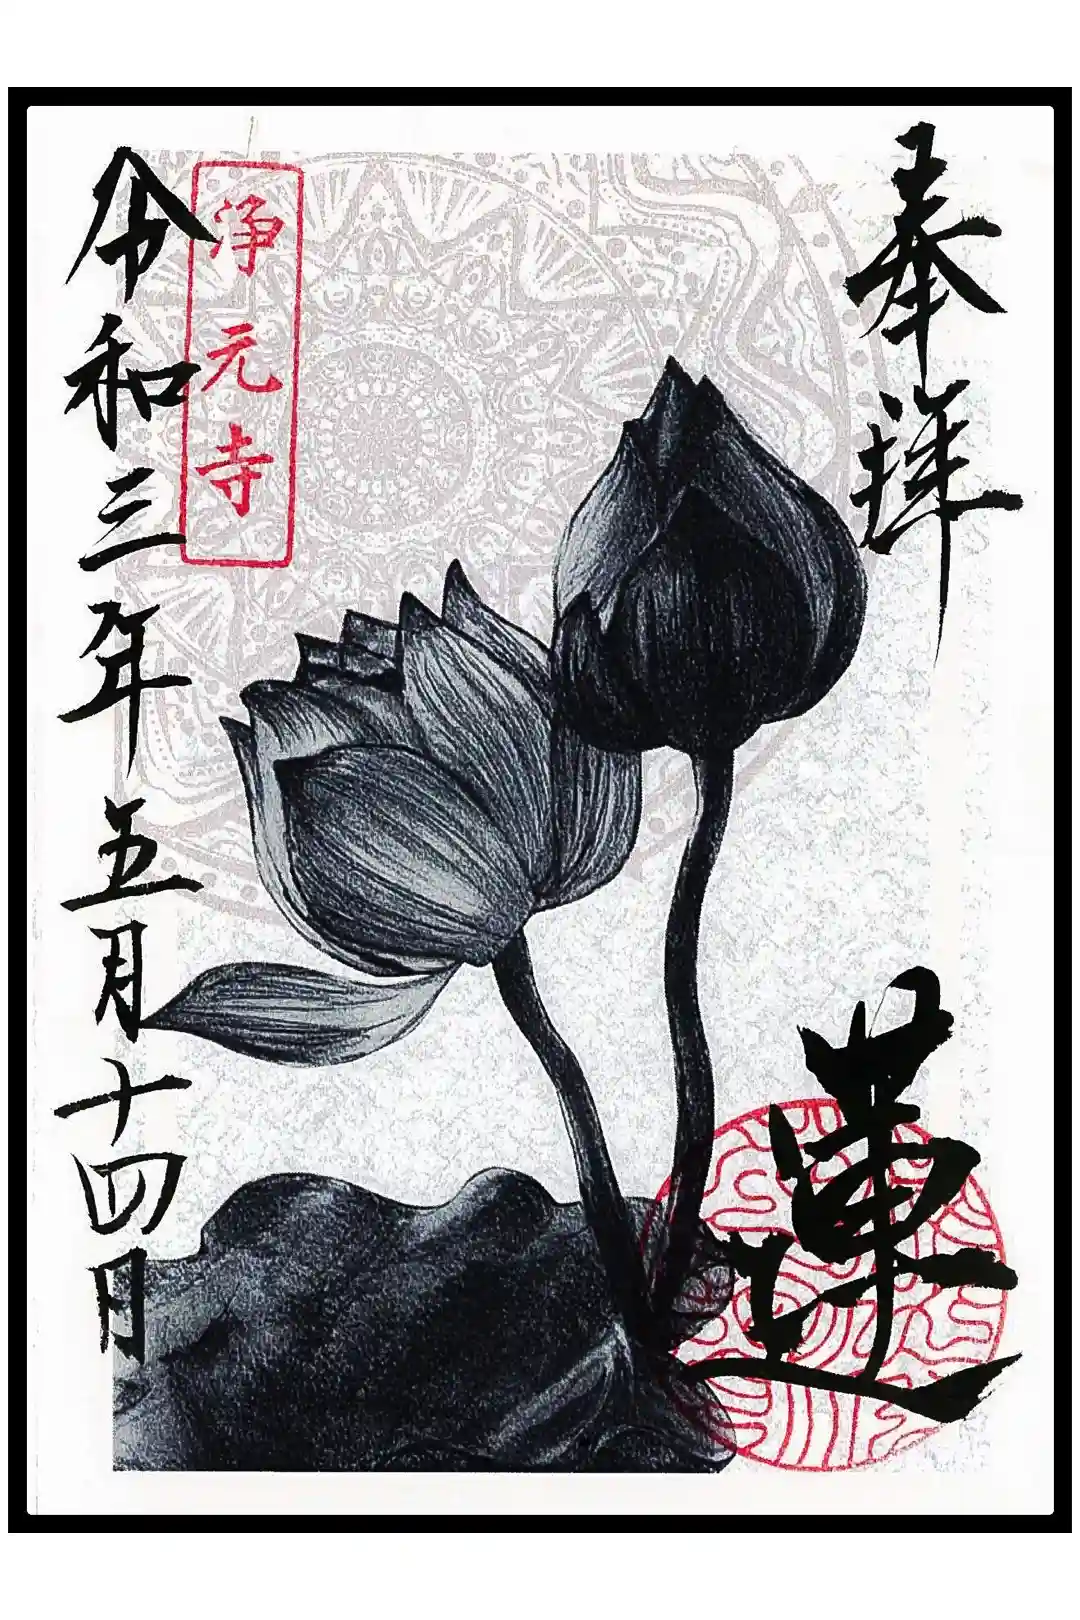 奉拝
蓮
浄元寺
令和三年五月十四日